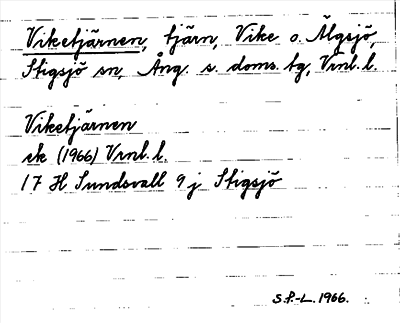 Viketjärnen, tjärn, Vike o. Älgsjö,
Stigsjö sn, Ång. s. doms. tg, Vrnl. l.
Viketjärnen
ek (1966) Vrnl. l.
17 H Sundsvall 9 j Stigsjö
S.P.-L. 1966.